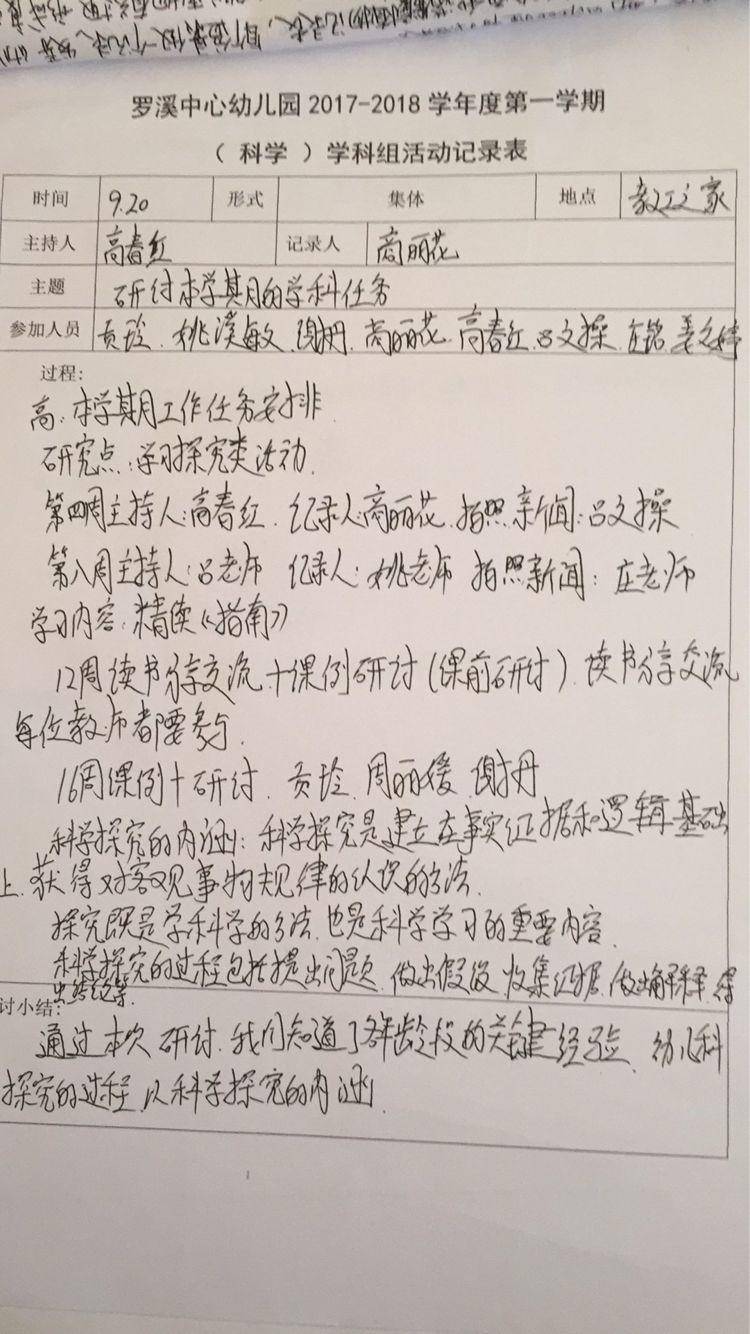 罗溪中心幼儿园2017-2018学年度第一学期
（ 科学 ）学科组活动记录表
时间 9.20 形式 集体 地点 教工之家
主持人 高春红 记录人 高丽花
主题 研讨本学期的学科任务
参加人员 贡玲、姚溪敏、谢丹、高丽花、高春红、吕文操、庄铭、姜文婷
过程：
高：本学期工作任务安排
研究点：学习探究类活动
第四周主持人：高春红、纪录人：高丽花、拍照新闻：吕文操
第八周主持人：吕老师 纪录人：姚老师 拍照新闻：庄老师
学习内容：精读《指南》
12周读书分享交流+课例研讨（课前研讨）、读书分享交流
每位教师都要参与、
16周课例+研讨、贡玲、周丽媛、谢丹
科学探究的内涵：科学探究是建立在事实证据和逻辑基础
上、获得对客观事物规律的认识的方法、
探究既是学科学的方法、也是科学学习的重要内容、
科学探究的过程包括提出问题、做出假设、收集证据、做出解释、得
出结论等、
讨小结：
通过本次研讨、我们知道了各年龄段的关键经验、幼儿科
探究的过程、以科学探究的内涵